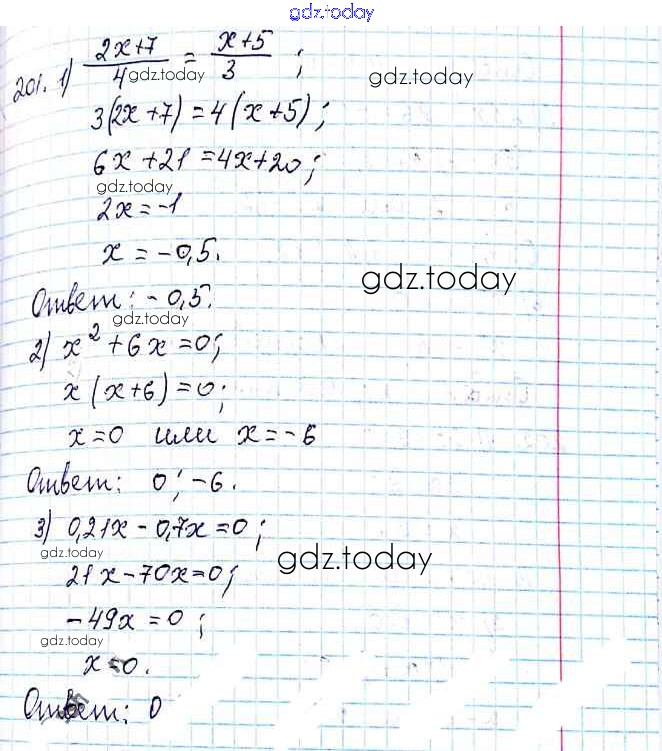 gdz.today
201. 1) (2x+7)/4 = (x+5)/3 ;
gdz.today gdz.today
3(2x+7)=4(x+5);
6x+21=4x+20;
gdz.today
2x=-1
x=-0,5.
gdz.today
Ответ: -0,5.
gdz.today
2) x²+6x=0;
x(x+6)=0;
x=0 или x=-6
Ответ: 0; -6.
3) 0,21x-0,7x=0;
gdz.today gdz.today
21x-70x=0;
-49x=0;
gdz.today
x=0.
Ответ: 0